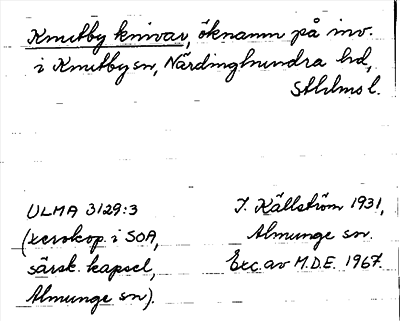 Knutby knivar, öknamn på inv.
i Knutby sn, Närdinghundra hd,
Sthlms l.
ULMA 3129:3
(xerokop. i SOA,
särsk. kapsel,
Almunge sn).
I. Källström 1931,
Almunge sn.
Exc. av M.D.E. 1967.